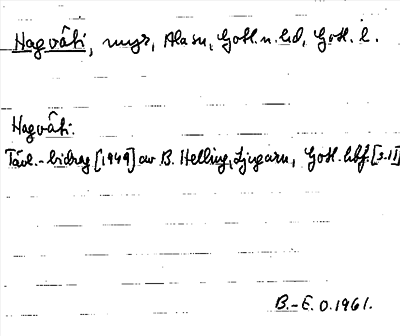 Hagvâti, myr, Alasn, Gotl. n. hd, Gotl. l.
Hagvâti.
Tävl.-bidrag [1949] av B. Helling, Ljugarn, Gotl. hbf. [s. 11]
B.-E. O. 1961.